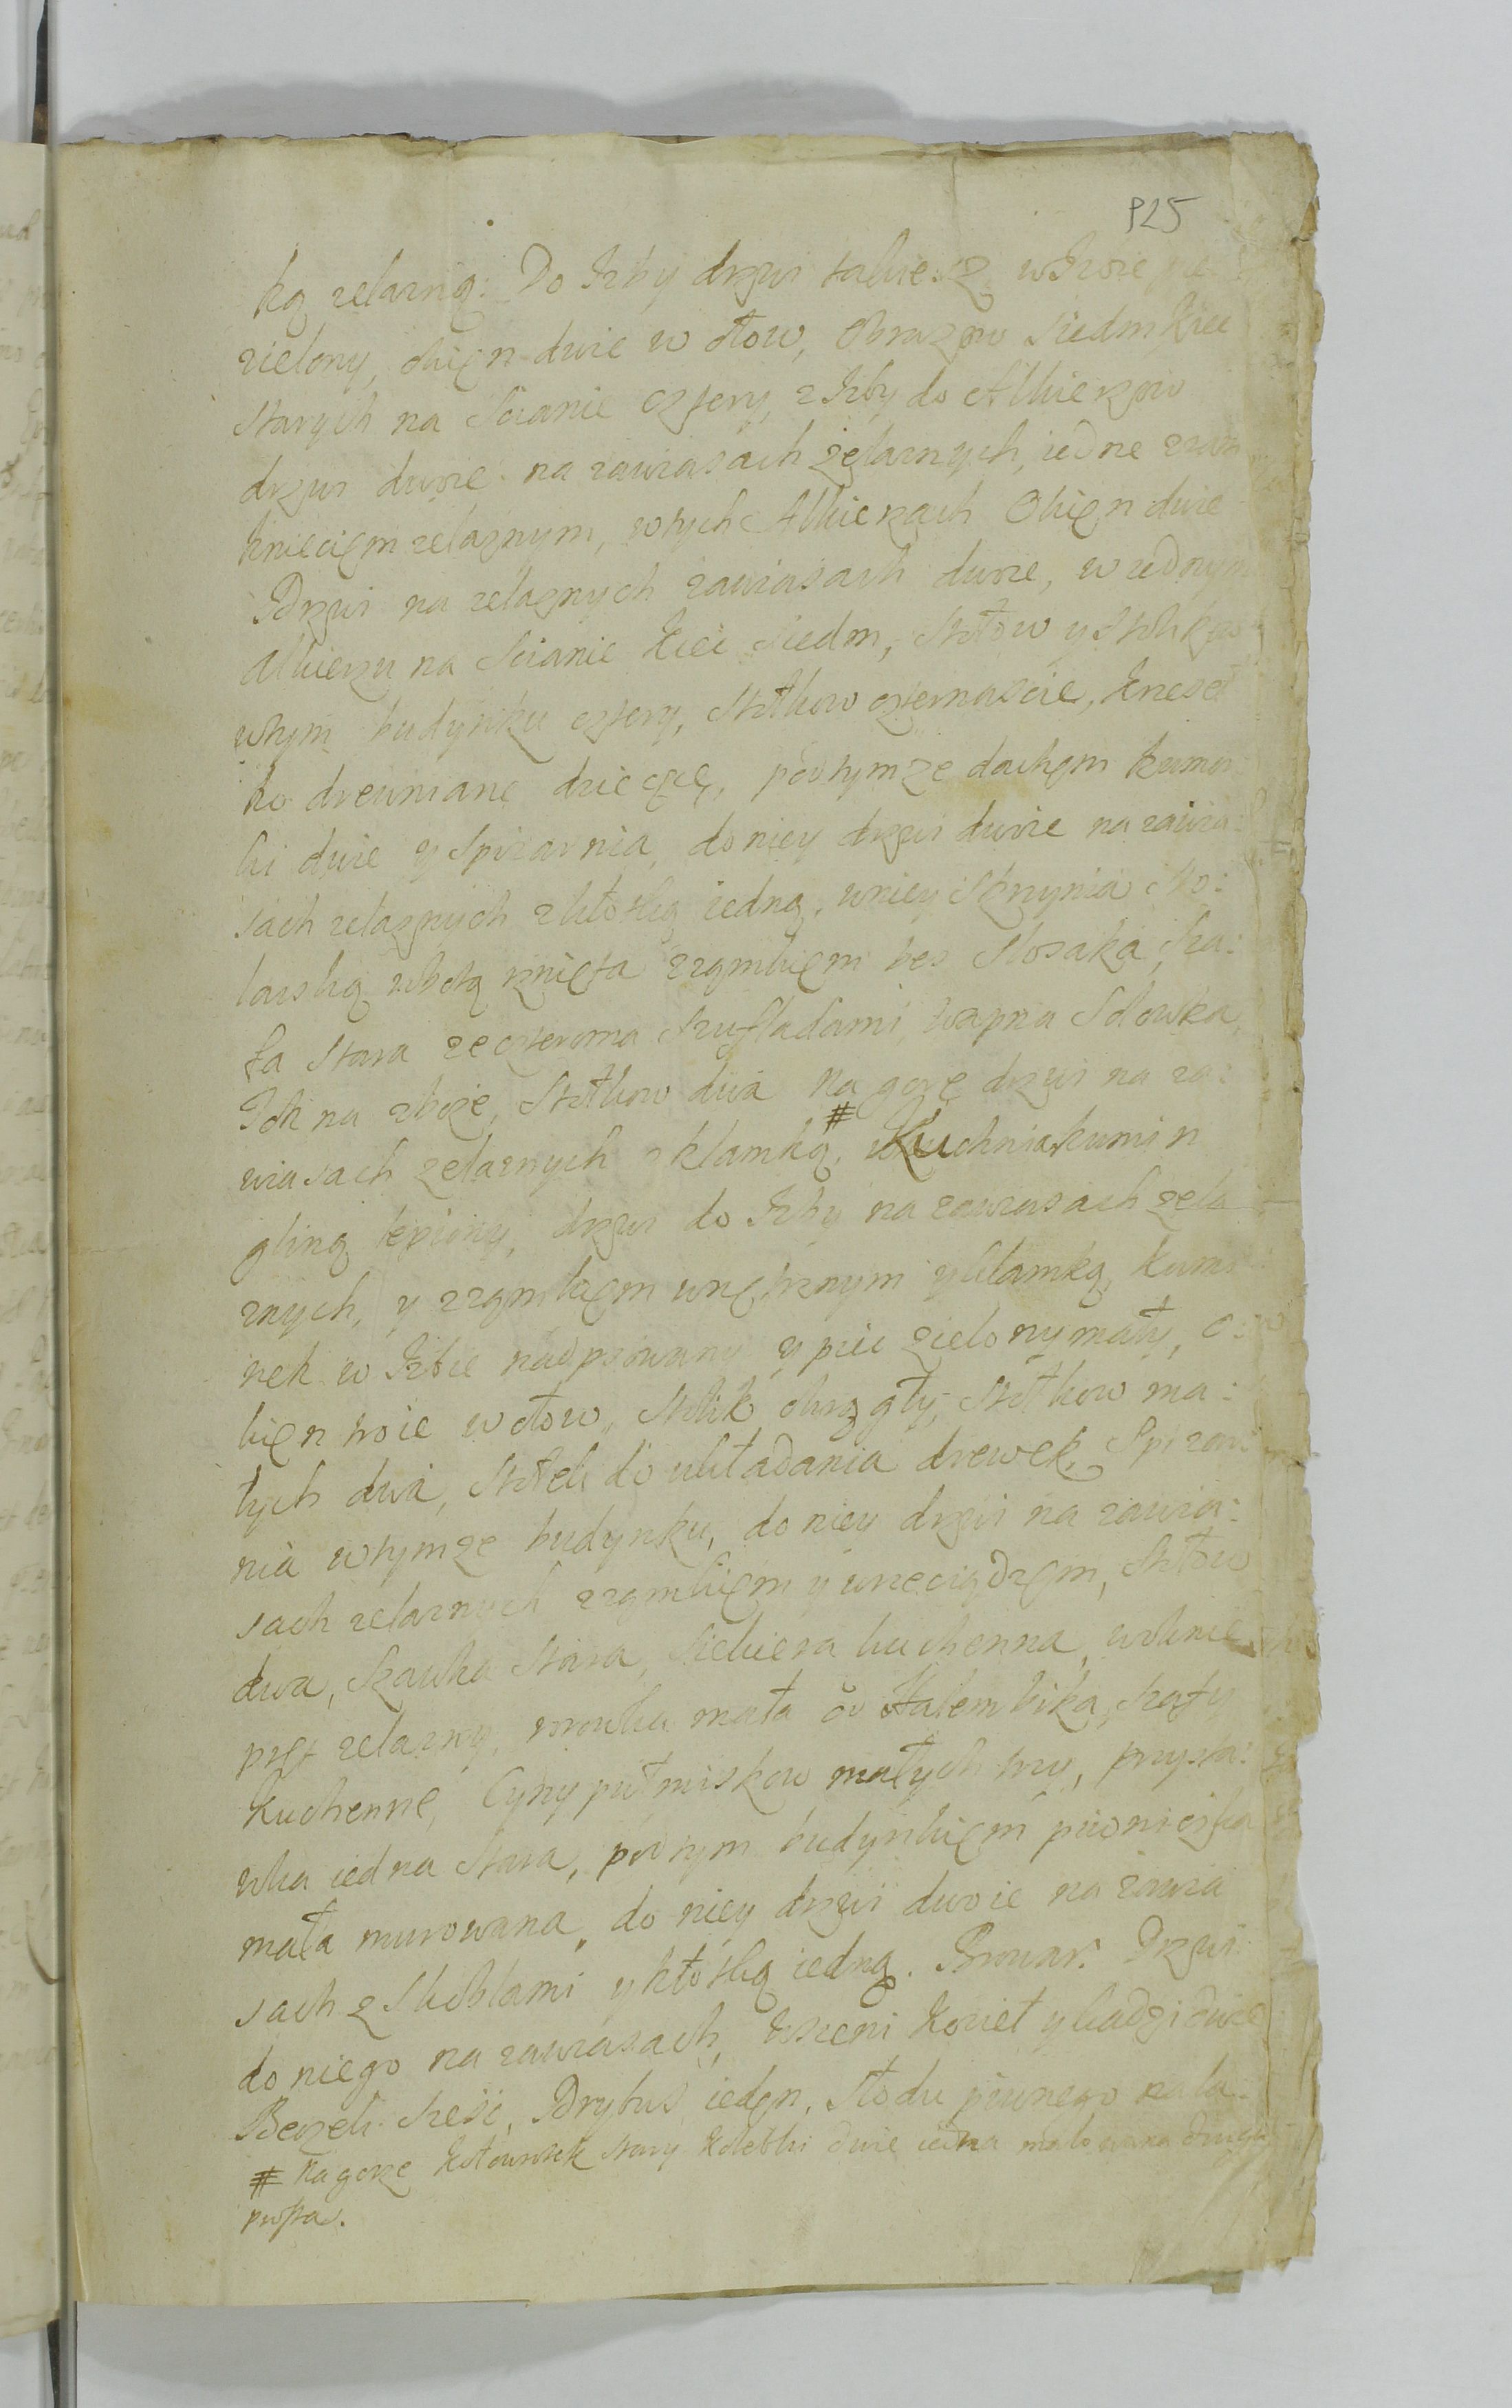 P25
ką zelazną. Do Izby drzwi takiesz w Izbie pie:
zielony, okięn dwie w ołow, Obrazow Siedm Kiec
starych na Scianie cztery, z Izby do Alkierzow
drzwi dwoie na zawiasach żelaznych, iedne zzam
knieciem zelaznym, wtych Alkierzach Okięn dwie
Drzwi na zelaznych zawiasach dwoie, w iednym
Alkierzu na Scianie Kiec Siedm, Stołow y Stolikow
wtym budynku cztery, Stołkow czternascie, krzeseł
ko drewniane dziecęce, podtymze dachem komor
ki dwie y Spizarnia, do niey drzwi dwoie na zawia:
sach zelaznych zkłotką iedną, wniey Skrzynia Sto:
larską robotą rznięta zzamkiem bes Skosaka, Sza:
fa stara ze czterema Szufladami, wapna Solowka,
Pok na zboze, Stołkow dwa na gorę drzwi na za:
wiasach zelaznych zklamką, # Kuchnia kumin
gliną lepiony, drzwi do Izby na zawiasach zela
znych, y zzamkiem wnętrznym y klamką, kumi
nek w Izbie nadpsowany y piec zielony mały, o:
kięn troie w ołow, Stolik okrągły, Stołkow ma:
łych dwa, Stołek do układania drewek, Spizar:
nia wtymze budynku, do niey drzwi na zawia:
sach zelaznych zzamkiem y wrzeciądzem, Stołow
dwa, Szawka stara, Siekiera kuchenna,
pręt zelazny, rourka mała od Halembika, Szafy
Kuchenne, Cyny pułmiskow małych trzy, przysta:
wka iedna stara, pod tym budynkiem piwniczka
mała murowana, do niey drzwi dwoie na zawia
sach z Skoblami y kłotką iedną. Browar. Drzwi
do niego na zawiasach, Kocieł y kadzi dwie
Beczek Szesć, Drybus ieden, Słodu piwnego
# Na gorze stary Kolebki dwie iedna malowana druga
prosta.